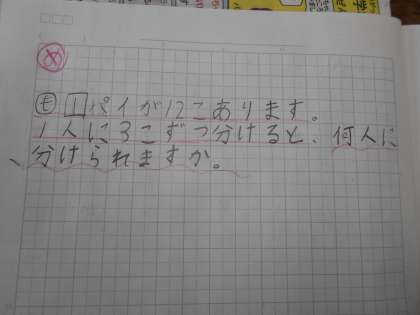 め
も 1 パイが12こあります。
1人に3こずつ分けると、何人に
分けられますか。